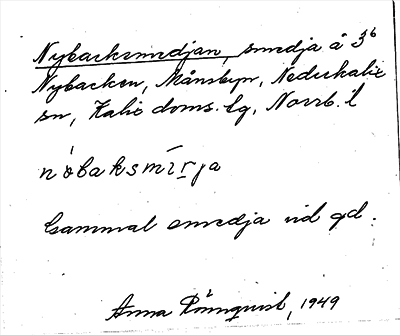 Nybacksmedjan, smedja å 3⁶
Nybacken, Månsbyn, Nederkalix
sn, Kalix doms. lg, Norrb. l
nóbaksmirja
Gammal smedja vid gd.
Anna Rönnqvist, 1949